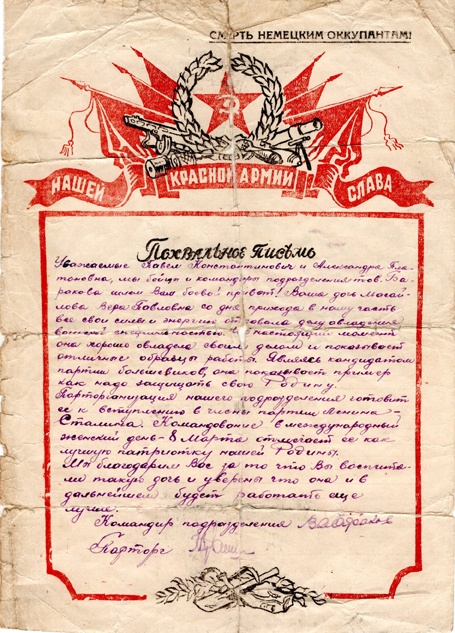 СМЕРТЬ НЕМЕЦКИМ ОККУПАНТАМ!
НАШЕЙ КРАСНОЙ АРМИИ СЛАВА
Похвальное Письмо
Уважаемые Павел Константинович и Александра Пла-
тоновна, мы бойцы и командиры подразделения тов. Ба-
ракова шлем Вам боевой привет! Ваша дочь
Вера Павловна со дня прихода в нашу часть
все свои силы и энергию отдавала делу овладения
военной специальностью. В настоящий момент
она хорошо овладела своим делом и показывает
отличные образцы работы. Являясь кандидатом
партии большевиков, она показывает пример
как надо защищать свою Родину.
Парторганизация нашего подразделения готовит
ее к вступлению в члены партии Ленина-
Сталина. Командование в международный
женский день - 8 Марта отмечает ее как
лучшую патриотку нашей Родины.
Мы благодарим Вас за то что Вы воспита-
ли такую дочь и уверены что она и в
дальнейшем будет работать еще
лучше.
Командир подразделения
Парторг